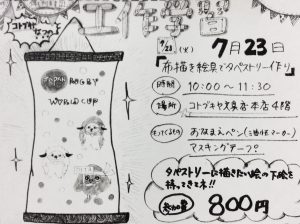 コトブキヤ
工作学習
7月23日
(火)
布描き絵具でタペストリー作り
時間 10:00〜11:30
場所 コトブキヤ文具店本店4階
もってくるもの おなまえペン
マスキングテープ
JAPAN RUGBY
WORLD CUP
タペストリーに描きたい絵の下絵を
持ってきてネ!!
参加費 800円